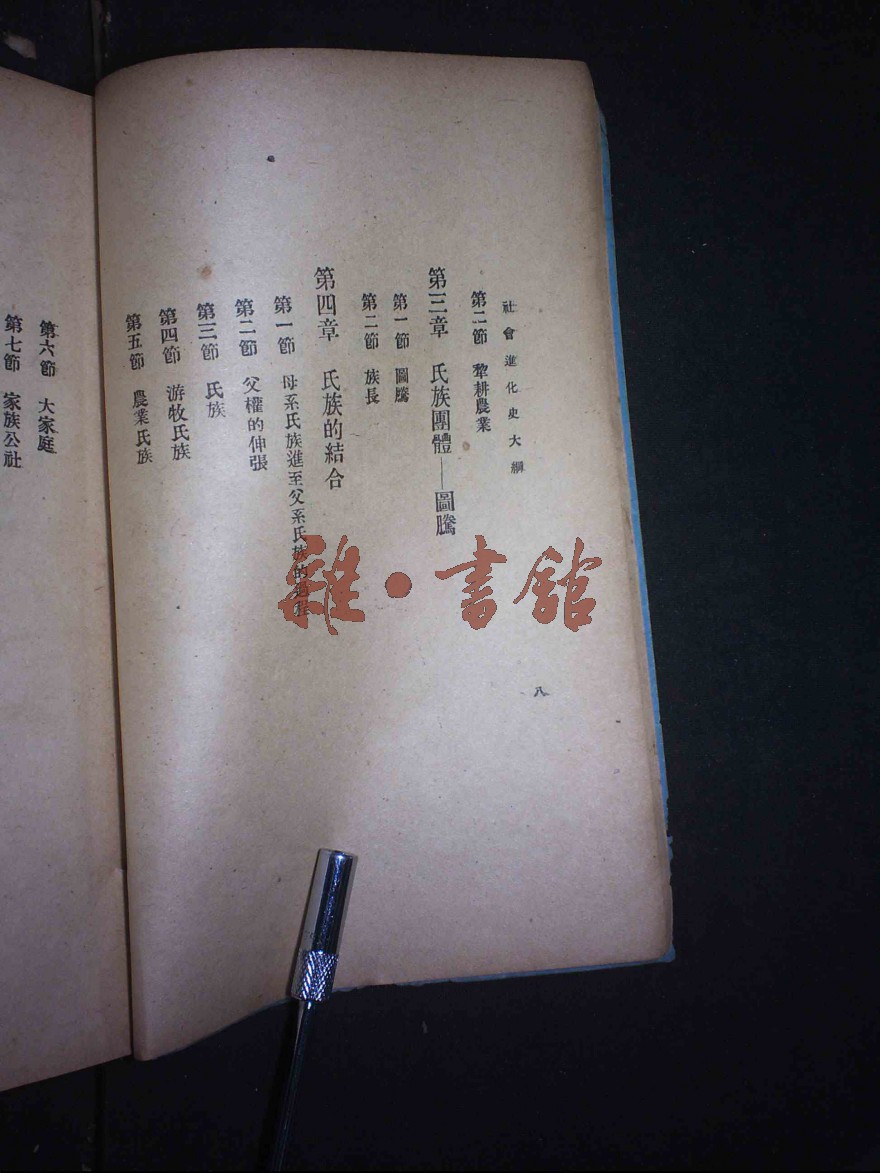 社會進化史大綱
八
第二節 犂耕農業
第三章 氏族團體—圖騰
第一節 圖騰
第二節 族長
第四章 氏族的結合
第一節 母系氏族進至父系氏族的過程
第二節 父權的伸張
第三節 氏族
第四節 游牧氏族
第五節 農業氏族
第六節 大家庭
第七節 家族公社
雜·書館